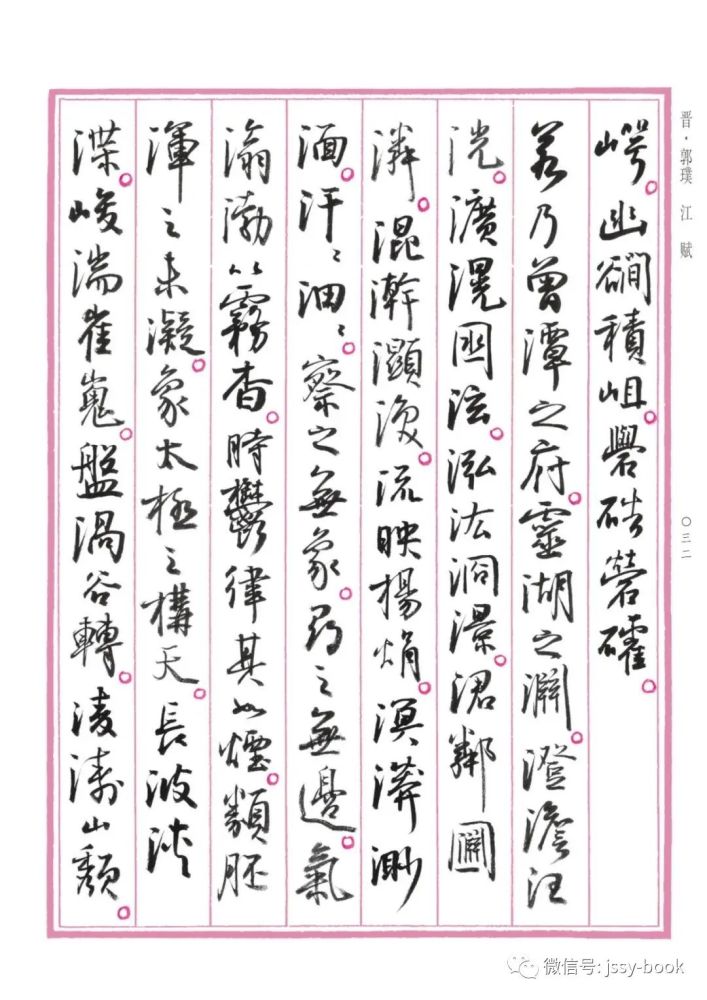 晋·郭璞 江赋
〇三二
崿。幽澗積岨。礐硞礭。
若乃曾潭之府。靈湖之淵。澄澹汪
洸。瀇滉囦泫。泓汯洞澋。涒鄰㘤
潾。混澣灦渙。流映揚焆。溟漭渺
湎。汗〻沺〻。察之無象。尋之無邊。氣
滃渤以霧杳。時鬱律其如煙。類胚
渾之未凝。象太極之構天。長波浹
渫。峻湍崔嵬。盤渦谷轉。淩濤山頹。
微信号: jssy-book